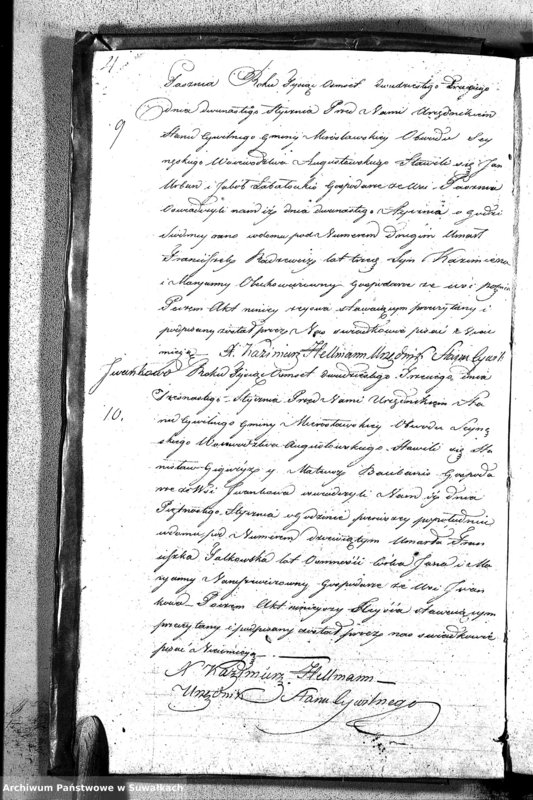 21
9
Pasznia Roku Tysiąc Osmset dwudziestego Trzeciego
dnia dwunastego Stycznia Przed Nami Urzędnikiem
Stanu Cywilnego Gminy Mirosławskiey Obwodu Sey
nyskiego Woiewodztwa Augustowskiego Stawili się Jan
Urban i Jakób Gospodarze ze Wsi Pasznia
Oswiadczyli nam iż dnia dwunastego Stycznia o godzi
Siodmey rano w domu pod Numerem Drugim Umarł
Franciszek lat trzy Syn Kazimierza
i Maryanny Gospodarze ze wsi
Poczem Akt ninieyszy stawaiącym przeczytany i
podpisany został przez Nas swiadkowie pisać
umieią. N. Kazimirz Hellmann Urzędnik Stanu Cywil
Iwankowo Roku Tysiąc Osmset dwudziestego Trzeciego dnia
10.
Stycznia Przed Nami Urzędnikiem Sta
nu Cywilnego Gminy Mirosławskiey Obwodu Seyny
skiego Woiewodztwa Augustowskiego Stawili się Sta
nisław y Mateusz Gospoda
rze ze Wsi Iwankowa oswiadczyli Nam iż dnia
Stycznia o Godzinie pierwszy popołudniu
w domu pod Numerem dziewiątym Umarła Fran
ciszka Jatkowska lat Osmnaście córka Jana i Ma
ryanny Gospodarze ze Wsi Iwan
kowa Poczem Akt ninieyszy stawaiącym
przeczytany i podpisany został przez nas swiadkowie
pisać nieumieią
N Kazimirz Hellmann
Urzędnik Stanu Cywilnego
Archiwum Państwowe w Suwałkach